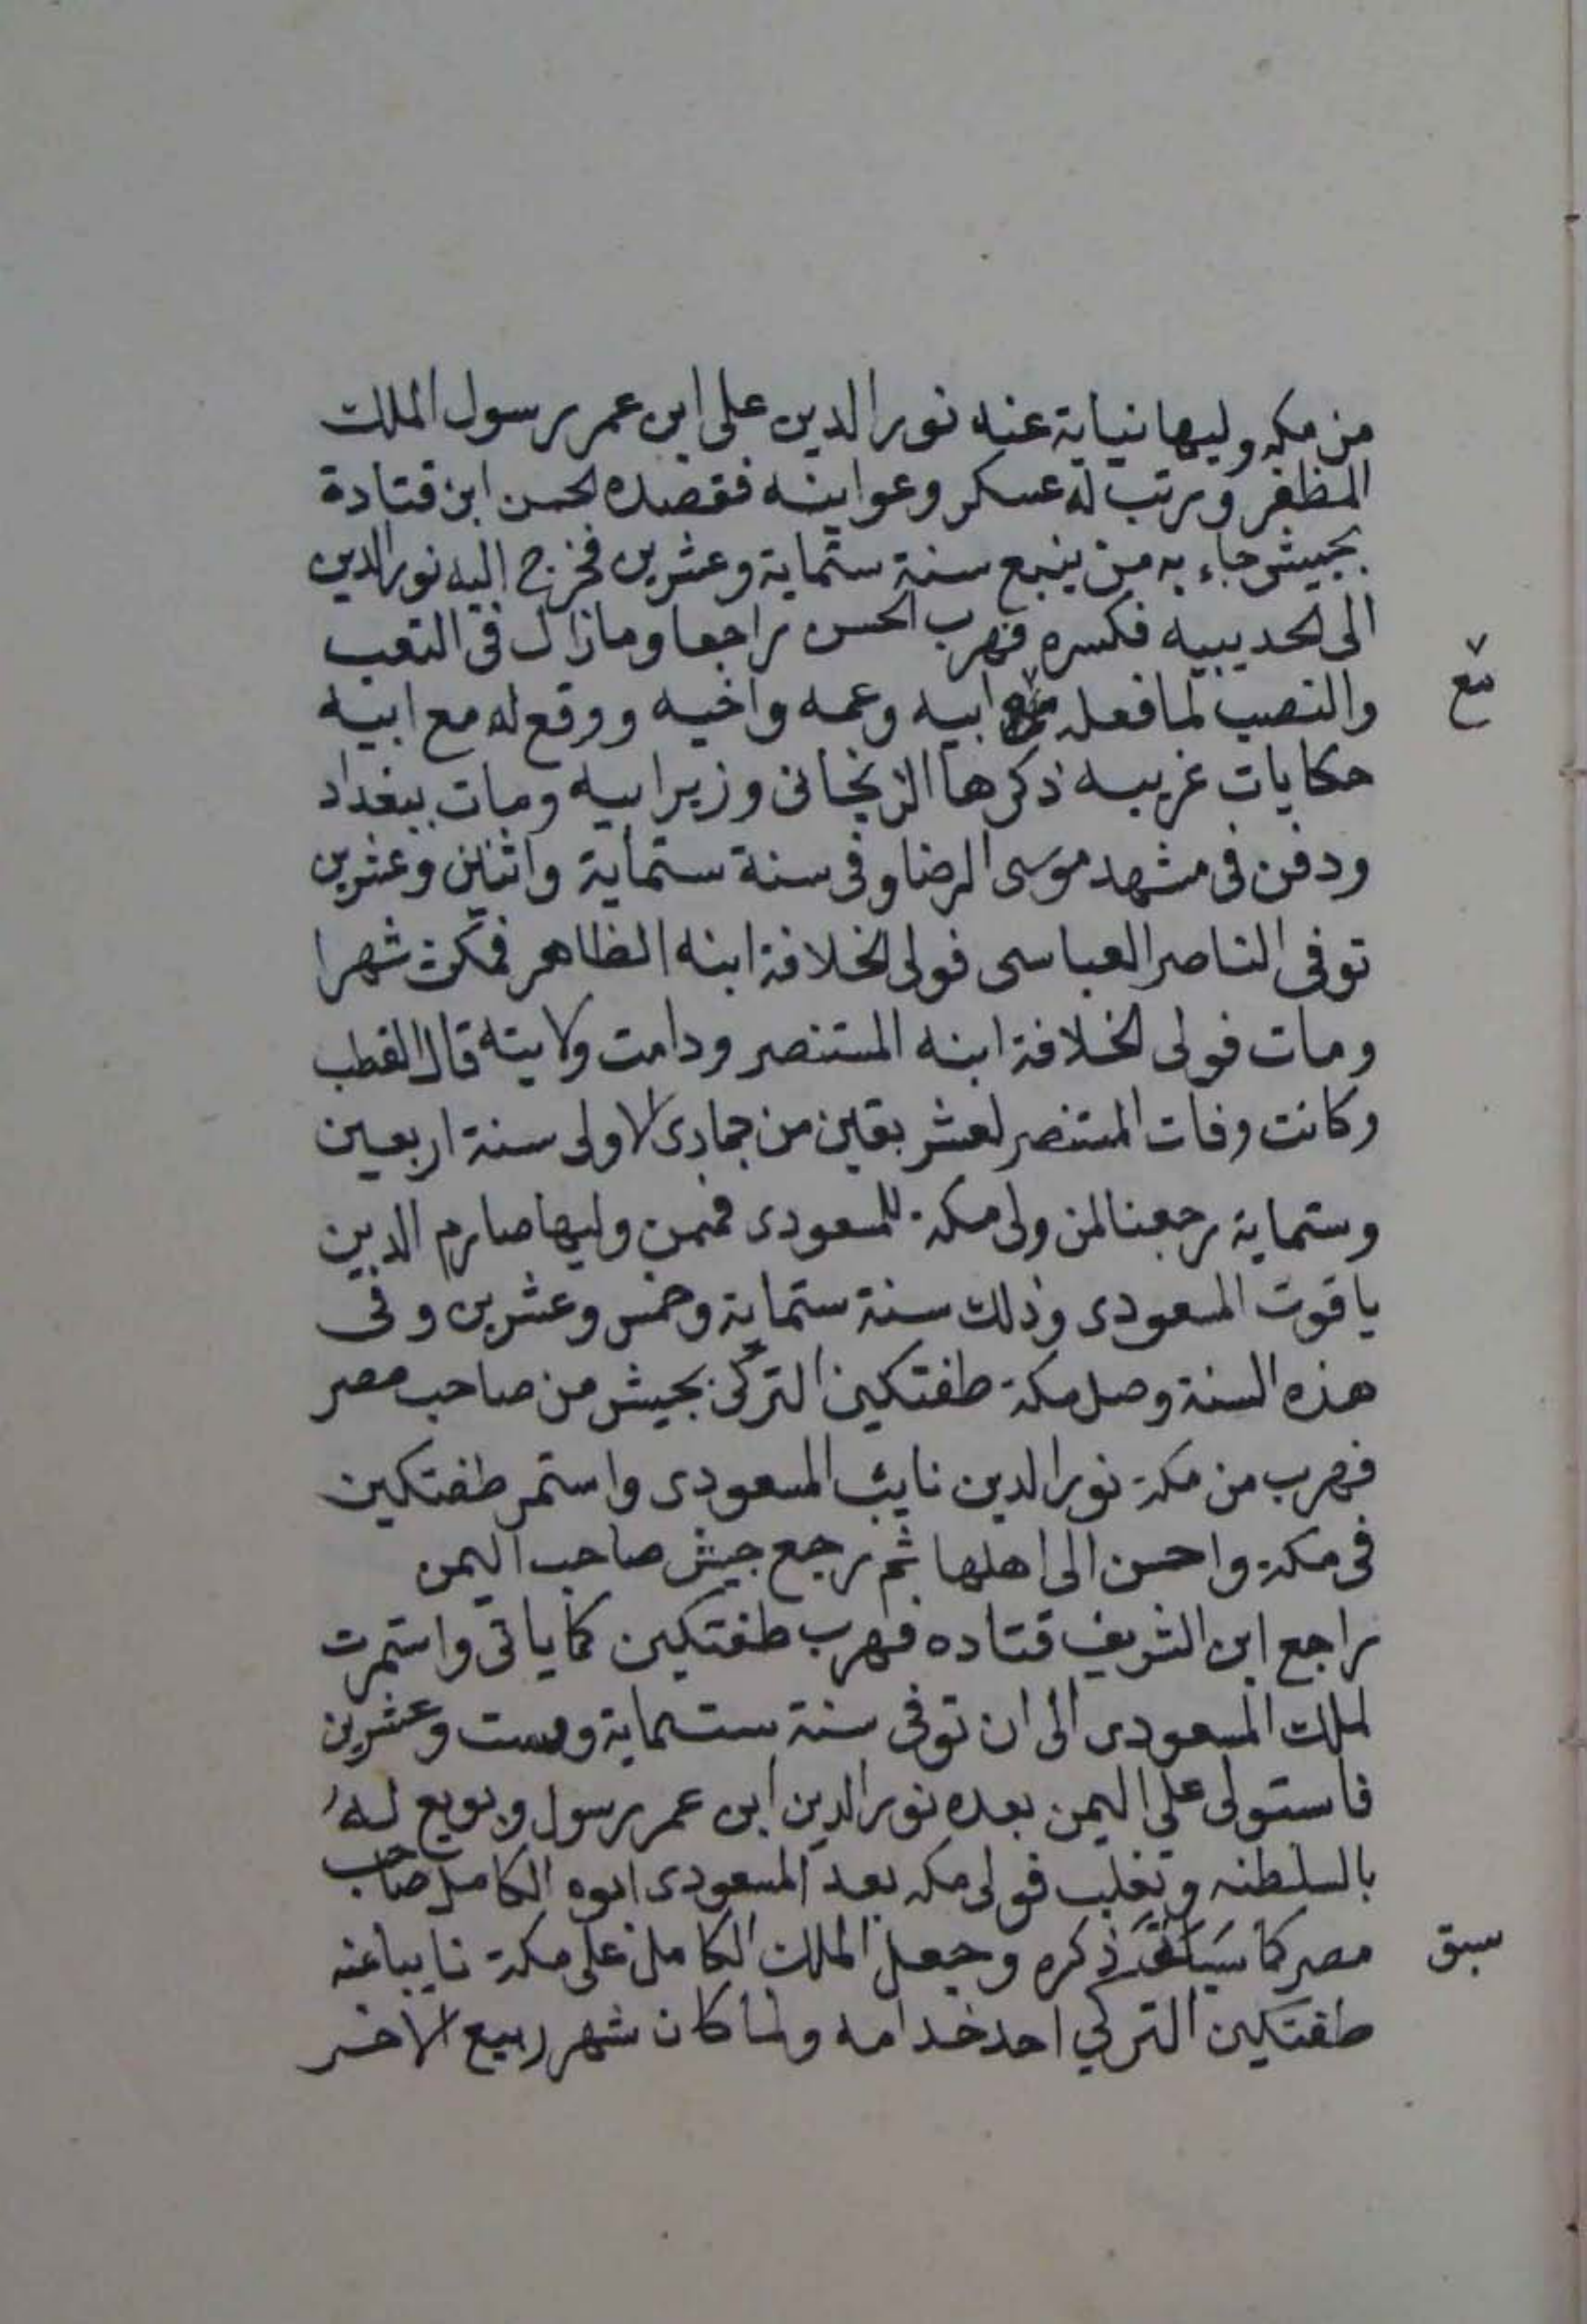 من مكه وليها نيابة عنه نور الدين على ابن عمر رسول الملك
المظفر ورتب له عسكر وعوا ينه فقصده الحسن ابن قتادة
بجيش جاء به من ينبع سنة ستماية وعشرين فخرج اليه نور الدين
الى الحديبيه فكسره فهرب الحسن راجعا وما زال فى التعب
والنصب لما فعله ابيه وعمه واخيه ووقع له مع ابيه
مع
حكايات غريبه ذكرها الزنجانى وزير ابيه ومات ببغداد
ودفن فى مشهد موسى الرضا وفى سنة ستماية واثنين وعشرين
توفى الناصر العباسى فولى الخلافة ابنه الظاهر فمكث شهرا
ومات فولى الخلافة ابنه المستنصر ودامت ولايته قال القطب
وكانت وفات المستنصر لعشر بقين من جمادى الاولى سنة اربعين
وستماية رجعنا لمن ولى مكة للمسعودى فممن وليها صارم الدين
ياقوت المسعودى وذلك سنة ستماية وخمس وعشرين وفى
هذه السنة وصل مكة طفتكين التركى بجيش من صاحب مصر
فهرب من مكة نور الدين نايب المسعودى واستمر طفتكين
فى مكة واحسن الى اهلها ثم رجع جيش صاحب اليمن
راجع ابن الشريف قتاده فهرب طفتكين كما ياتى واستمرت
لملك المسعودى الى ان توفى سنة ستماية وست وعشرين
فاستولى على اليمن بعده نور الدين ابن عمر رسول وبويع له
بالسلطنه وتغلب فولى مكه بعد المسعودى ابوه الكامل صاحب
مصر كما ذكره وجعل الملك الكامل على مكة نايبا عنه
سبق
طفتكين التركي احد خدامه ولما كان شهر ربيع الاخر